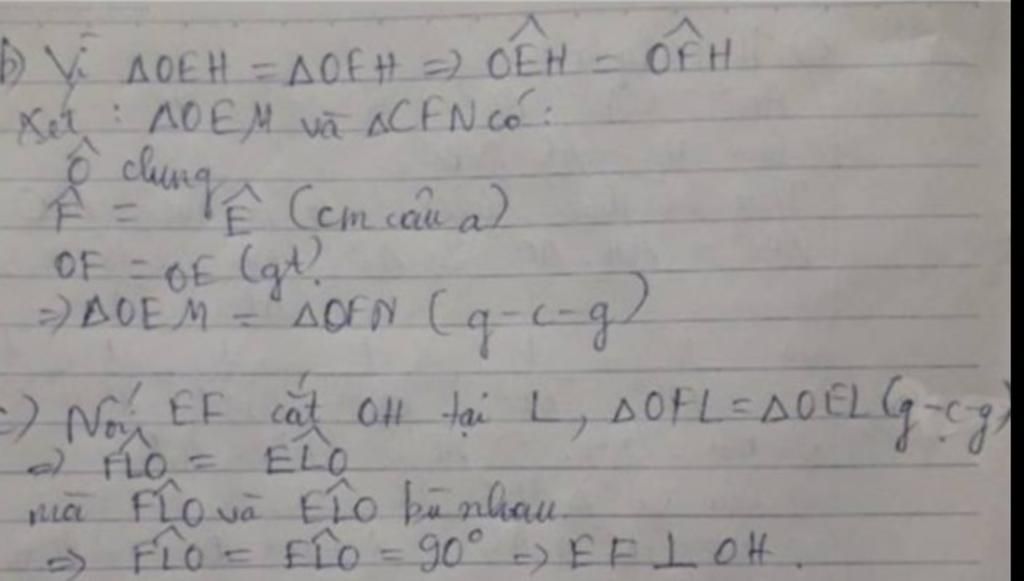 b) Vì ΔOEH = ΔOFH => OÊH = OF̂H
Xét : ΔOEM và ΔCFN có :
Ô chung
F̂ = Ê (cm câu a)
OF = OE (gt)
=> ΔOEM = ΔOFN (g-c-g)
c) Nối EF cắt OH tại L, ΔOFL = ΔOEL (g-c-g)
=> FL̂O = EL̂O
mà FL̂O và EL̂O bù nhau.
=> FL̂O = EL̂O = 90° => EF ⊥ OH.